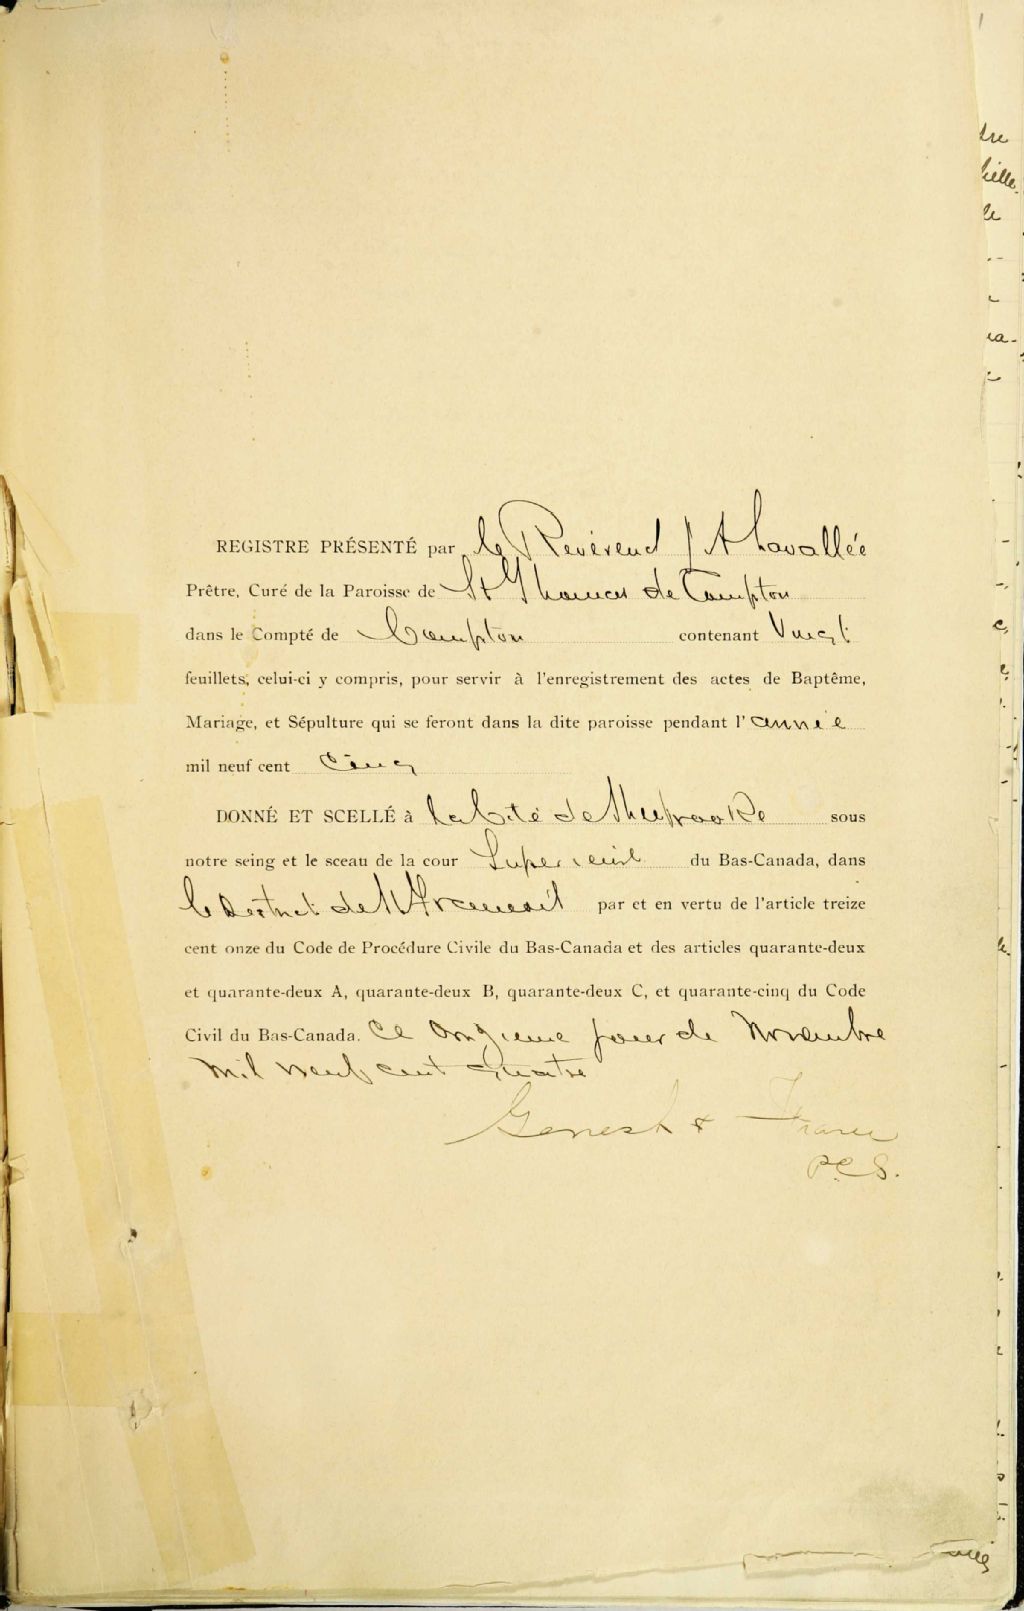 REGISTRE PRÉSENTÉ par le Revérend J A Lavallée
Prêtre, Curé de la Paroisse de St Thomas de Compton
dans le Compté de Compton contenant Vingt
feuillets, celui-ci y compris, pour servir à l'enregistrement des actes de Baptême,
Mariage, et Sépulture qui se feront dans la dite paroisse pendant l'année
mil neuf cent Cinq
DONNÉ ET SCELLÉ à la Cité de Sherbrooke sous
notre seing et le sceau de la cour Superieure du Bas-Canada, dans
le District de St Francois par et en vertu de l'article treize
cent onze du Code de Procédure Civile du Bas-Canada et des articles quarante-deux
et quarante-deux A, quarante-deux B, quarante-deux C, et quarante-cinq du Code
Civil du Bas-Canada. Ce Onzieme jour de Novembre
Mil neuf cent Quatre
Genest &
P.C.S.